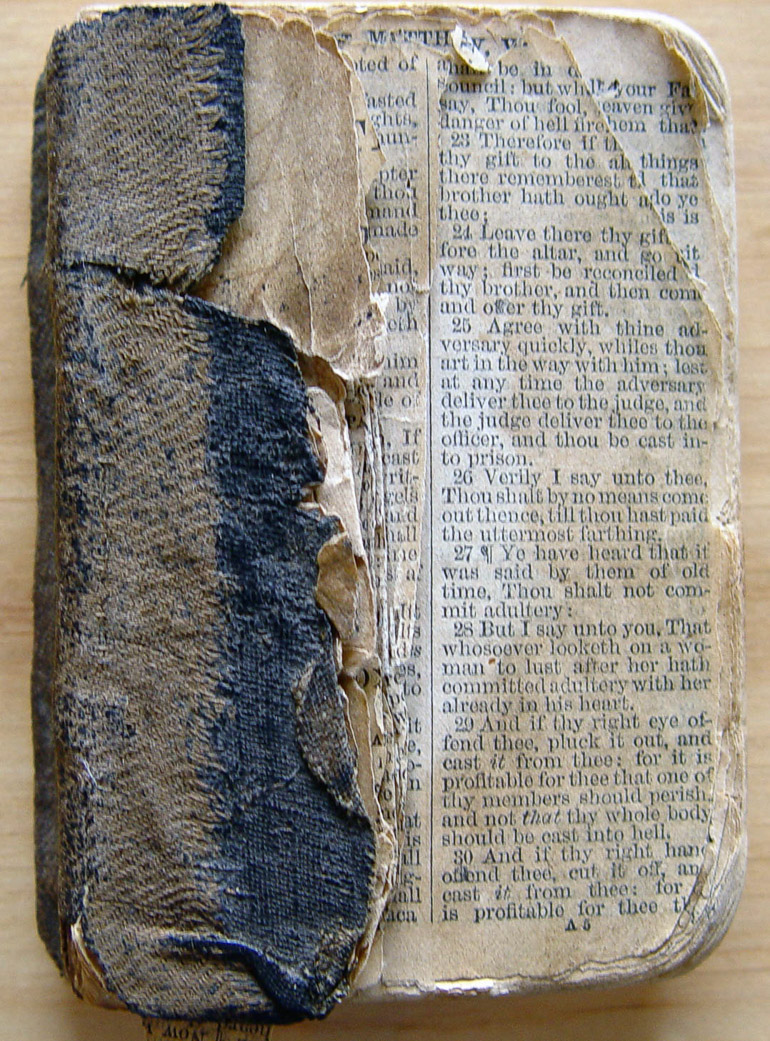 MATTHEW V.
oted of
asted
ghts,
aun-
pter
thou
mand
made
said,
not
by
eth
him
and
le of
If
cast
rit-
gels
and
hall
ne
to
at
is
all
g-
all
aca
shall be in
council: but whil your Fa
say, Thou fool, eaven giv
danger of hell fire hem tha
23 Therefore if th
thy gift to the al things
there rememberest t that
brother hath ought a do ye
thee; is is
24 Leave there thy gif
fore the altar, and go it
way; first be reconciled
thy brother, and then com
and offer thy gift.
25 Agree with thine ad-
versary quickly, whiles thou
art in the way with him; lest
at any time the adversary
deliver thee to the judge, and
the judge deliver thee to the
officer, and thou be cast in-
to prison.
26 Verily I say unto thee,
Thou shalt by no means come
out thence, till thou hast paid
the uttermost farthing.
27 ¶ Ye have heard that it
was said by them of old
time, Thou shalt not com-
mit adultery:
28 But I say unto you, That
whosoever looketh on a wo-
man to lust after her hath
committed adultery with her
already in his heart.
29 And if thy right eye of-
fend thee, pluck it out, and
cast it from thee: for it is
profitable for thee that one of
thy members should perish,
and not that thy whole body
should be cast into hell.
30 And if thy right hand
offend thee, cut it off, an
cast it from thee: for
is profitable for thee th
A 5